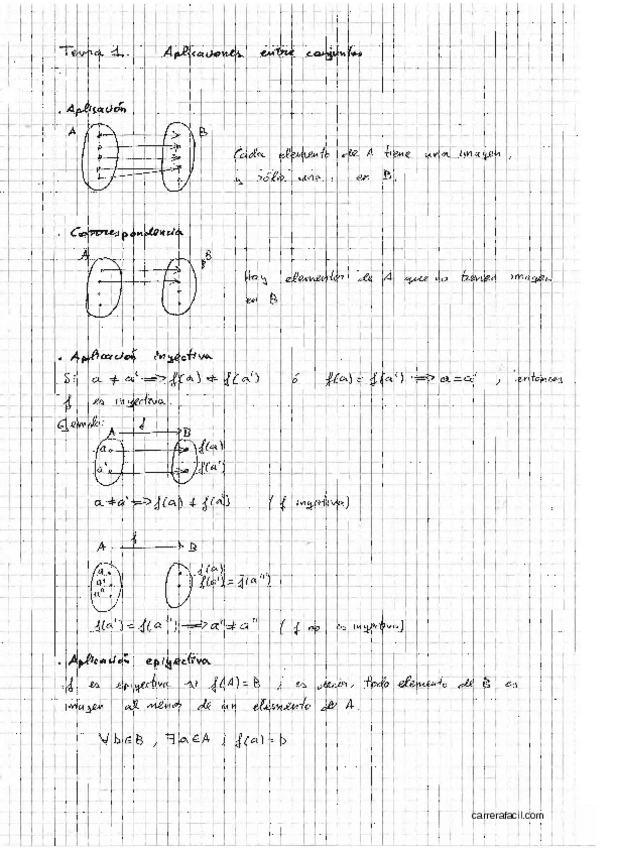 Tema 1. Aplicaciones entre conjuntos
. Aplicación
A B
Cada elemento de A tiene una imagen,
y sólo una, en B.
. Correspondencia
A B
Hay elementos de A que no tienen imagen
en B
. Aplicación inyectiva
Si a ≠ a' => f(a) ≠ f(a') ó f(a) = f(a') => a = a' , entonces
f es inyectiva.
Ejemplo:
A f B
a f(a)
a' f(a')
a ≠ a' => f(a) ≠ f(a') (f inyectiva)
A f B
a f(a)
a' f(a') = f(a'')
a''
f(a') = f(a'') => a' ≠ a'' (f no es inyectiva)
. Aplicación epiyectiva
f es epiyectiva si f(A) = B ; es decir, todo elemento de B es
imagen al menos de un elemento de A.
∀ b ∈ B , ∃ a ∈ A ; f(a) = b
carrerafacil.com